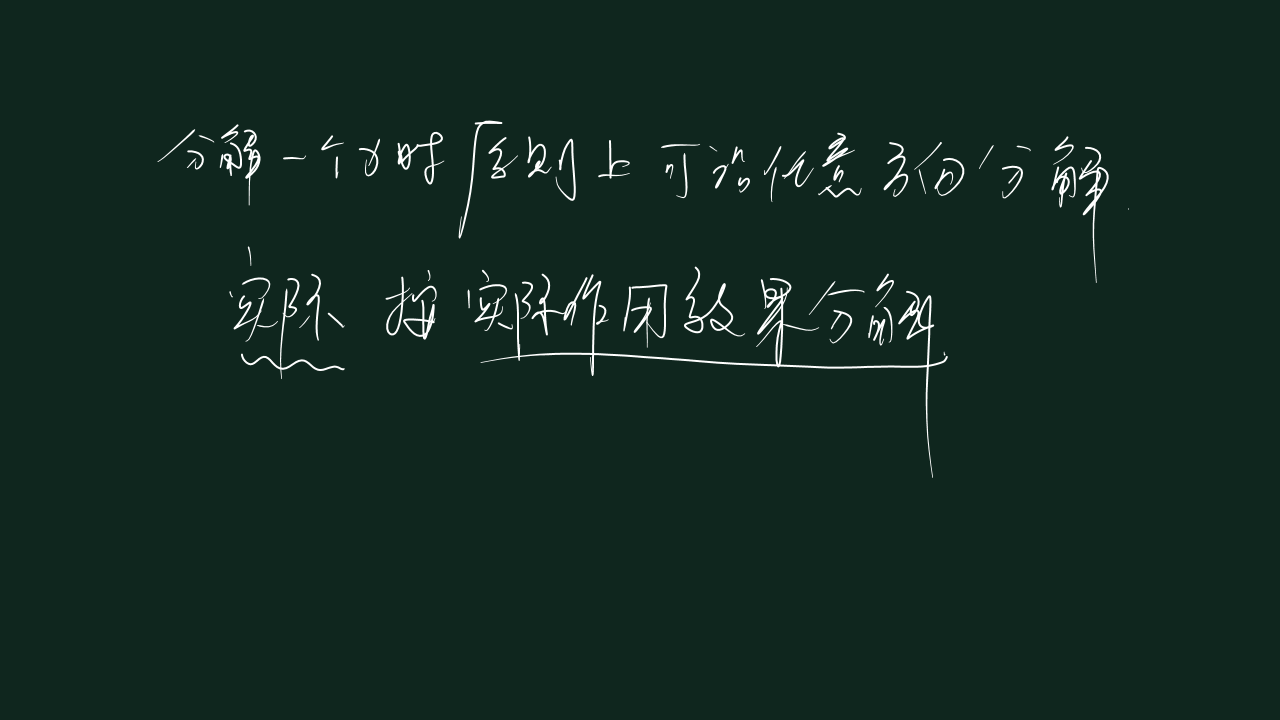 分解一个力时原则上可沿任意方向分解.
实际 按实际作用效果分解.